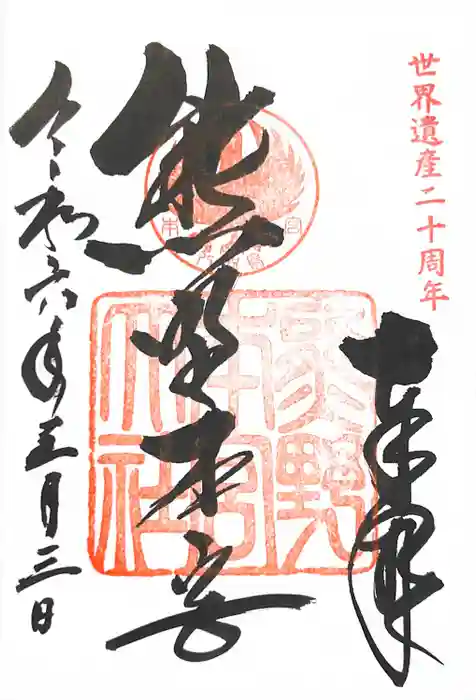 世界遺産二十周年
奉拝
熊野本宮
令和六年五月三日
熊野
本宮
大社